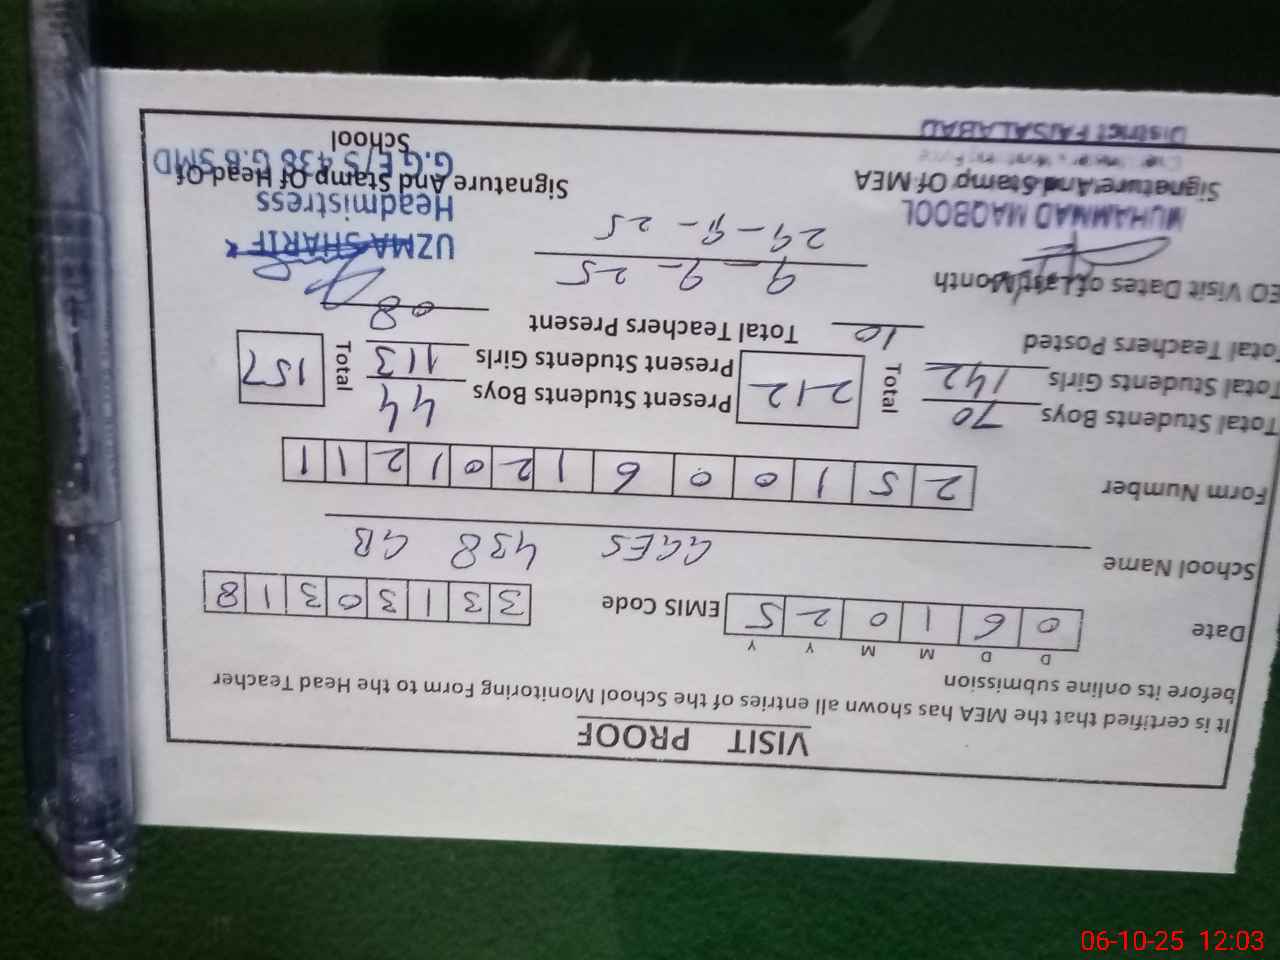 VISIT PROOF
It is certified that the MEA has shown all entries of the School Monitoring Form to the Head Teacher
before its online submission
D D M M Y Y
Date 0 6 1 0 2 5 EMIS Code 3 3 1 3 0 3 1 8
School Name GGES 438 GB
Form Number 2 5 1 0 0 6 1 2 0 1 2 1 1
Total Students Boys 70 Total 212 Present Students Boys 44 Total 157
Total Students Girls 142 Present Students Girls 113
Total Teachers Posted 10 Total Teachers Present 08
EO Visit Dates of Last Month 9-9-25
MUHAMMAD MAQBOOL
UZMA SHARIF
Headmistress
Signature And Stamp Of MEA
Signature And Stamp Of Head Of
School
G.G.E/S 438 G.B SMD
District FAISALABAD
06-10-25 12:03